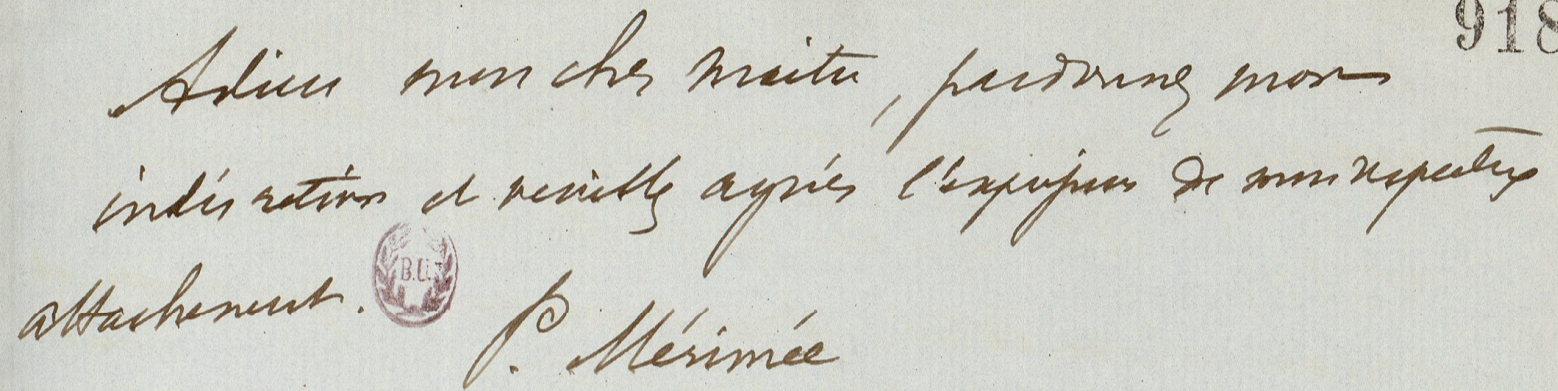 918
Adieu mon cher maître, pardonnez mon
indiscrétion et veuillez agréer l'expression de mon respectueux
attachement.
B.U.
P. Mérimée